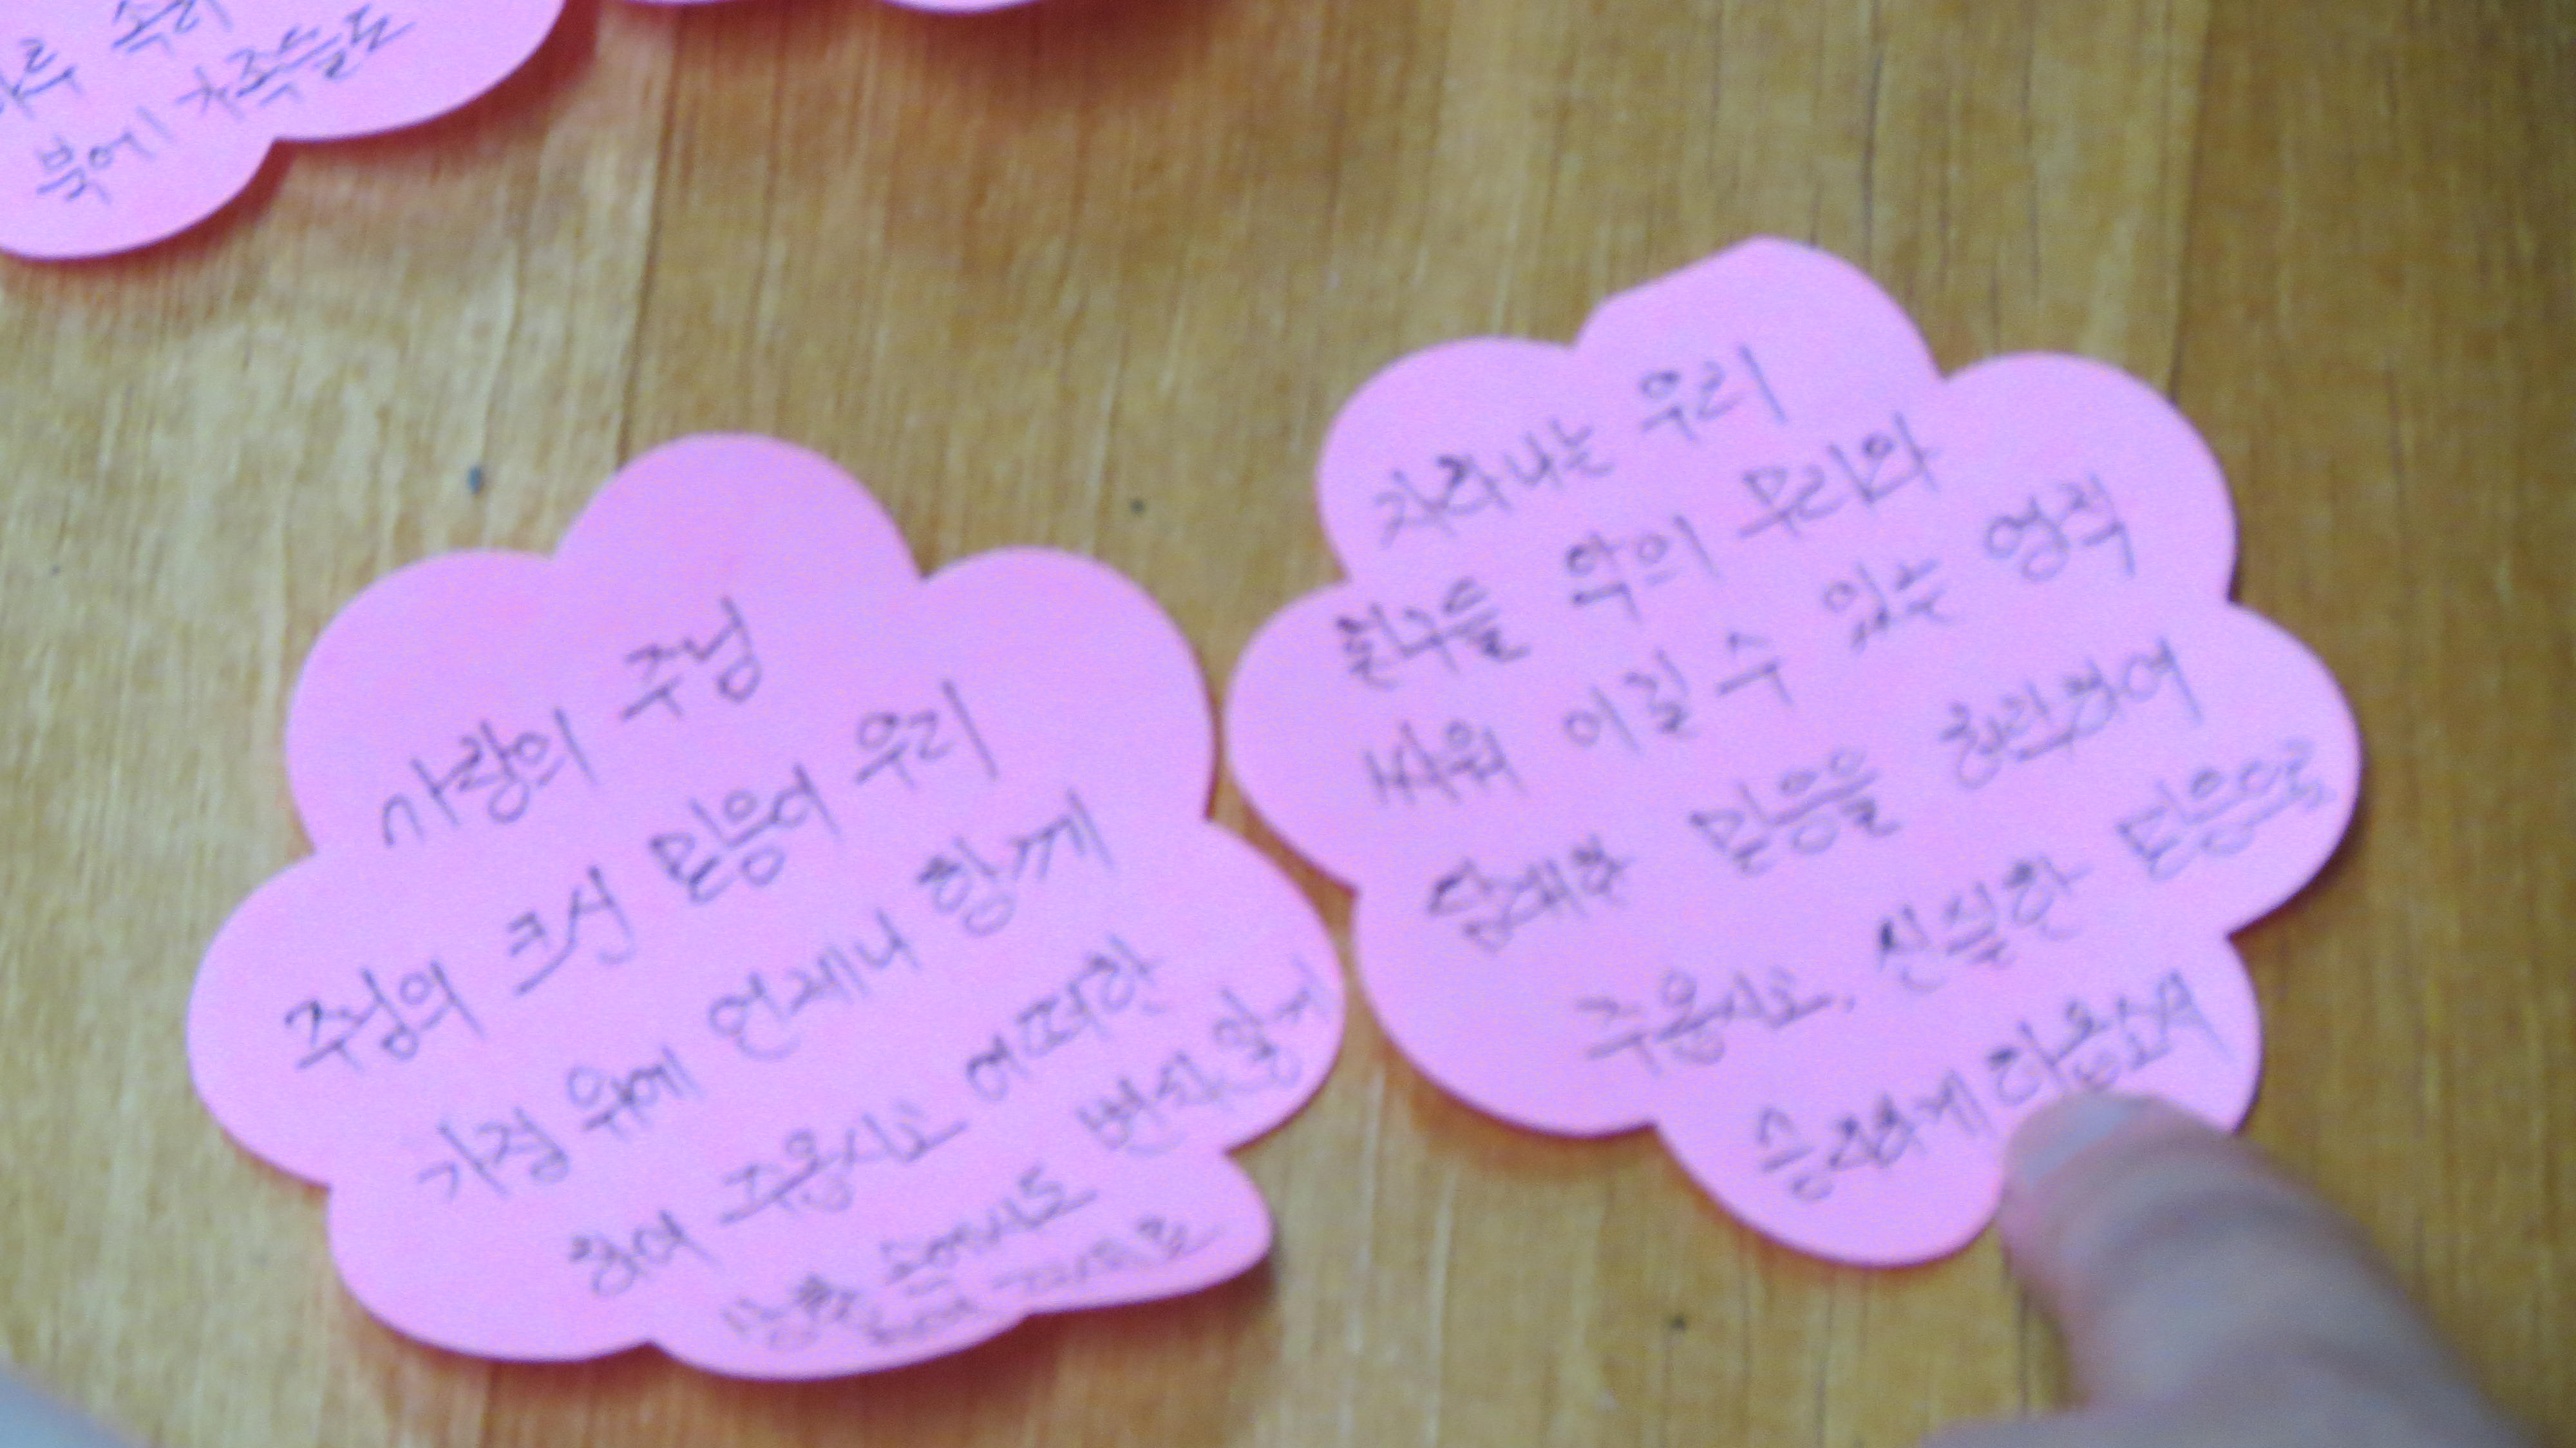 속히
북에 가족들도
사랑의 주님
주님의 크신 믿음이 우리
가정 위에 언제나 함께
하여 주옵시고 어떠한
상황 속에서도 변치않게
자라나는 우리
친구들 악의 무리와
싸워 이길 수 있는 영적
담대한 믿음을 허락하여
주옵시고, 신실한 믿음으로
승리하게 하옵소서